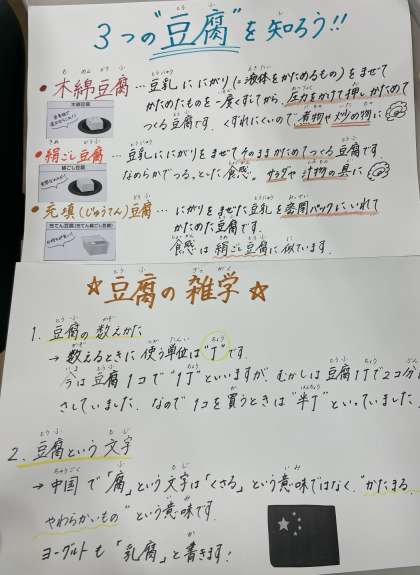 3つの"豆腐"を知ろう!!
木綿豆腐…豆乳ににがり(=液体をかためるもの)をまぜて
かためたものを一度くずしてから、圧力をかけて押しかためて
つくる豆腐です。くずれにくいので煮物や炒め物に
木綿豆腐
絹ごし豆腐…豆乳ににがりをまぜてそのままかためてつくる豆腐です。
なめらかでつるっとした食感。サラダや汁物の具に
絹ごし豆腐
充填(じゅうてん)豆腐…にがりをまぜた豆乳を密閉パックにいれて
かためた豆腐です。
食感は絹ごし豆腐に似ています。
☆豆腐の雑学☆
1. 豆腐の数えかた
→数えるときに使う単位は"丁"です。
今は豆腐1コで"1丁"といいますが、むかしは豆腐1丁で2コ分
さしていました。なので1コを買うときは"半丁"といっていました。
2. 豆腐という文字
→中国で「腐」という文字は「くさる」という意味ではなく、"かたまる
やわらかいもの"という意味です。
ヨーグルトも「乳腐」と書きます!